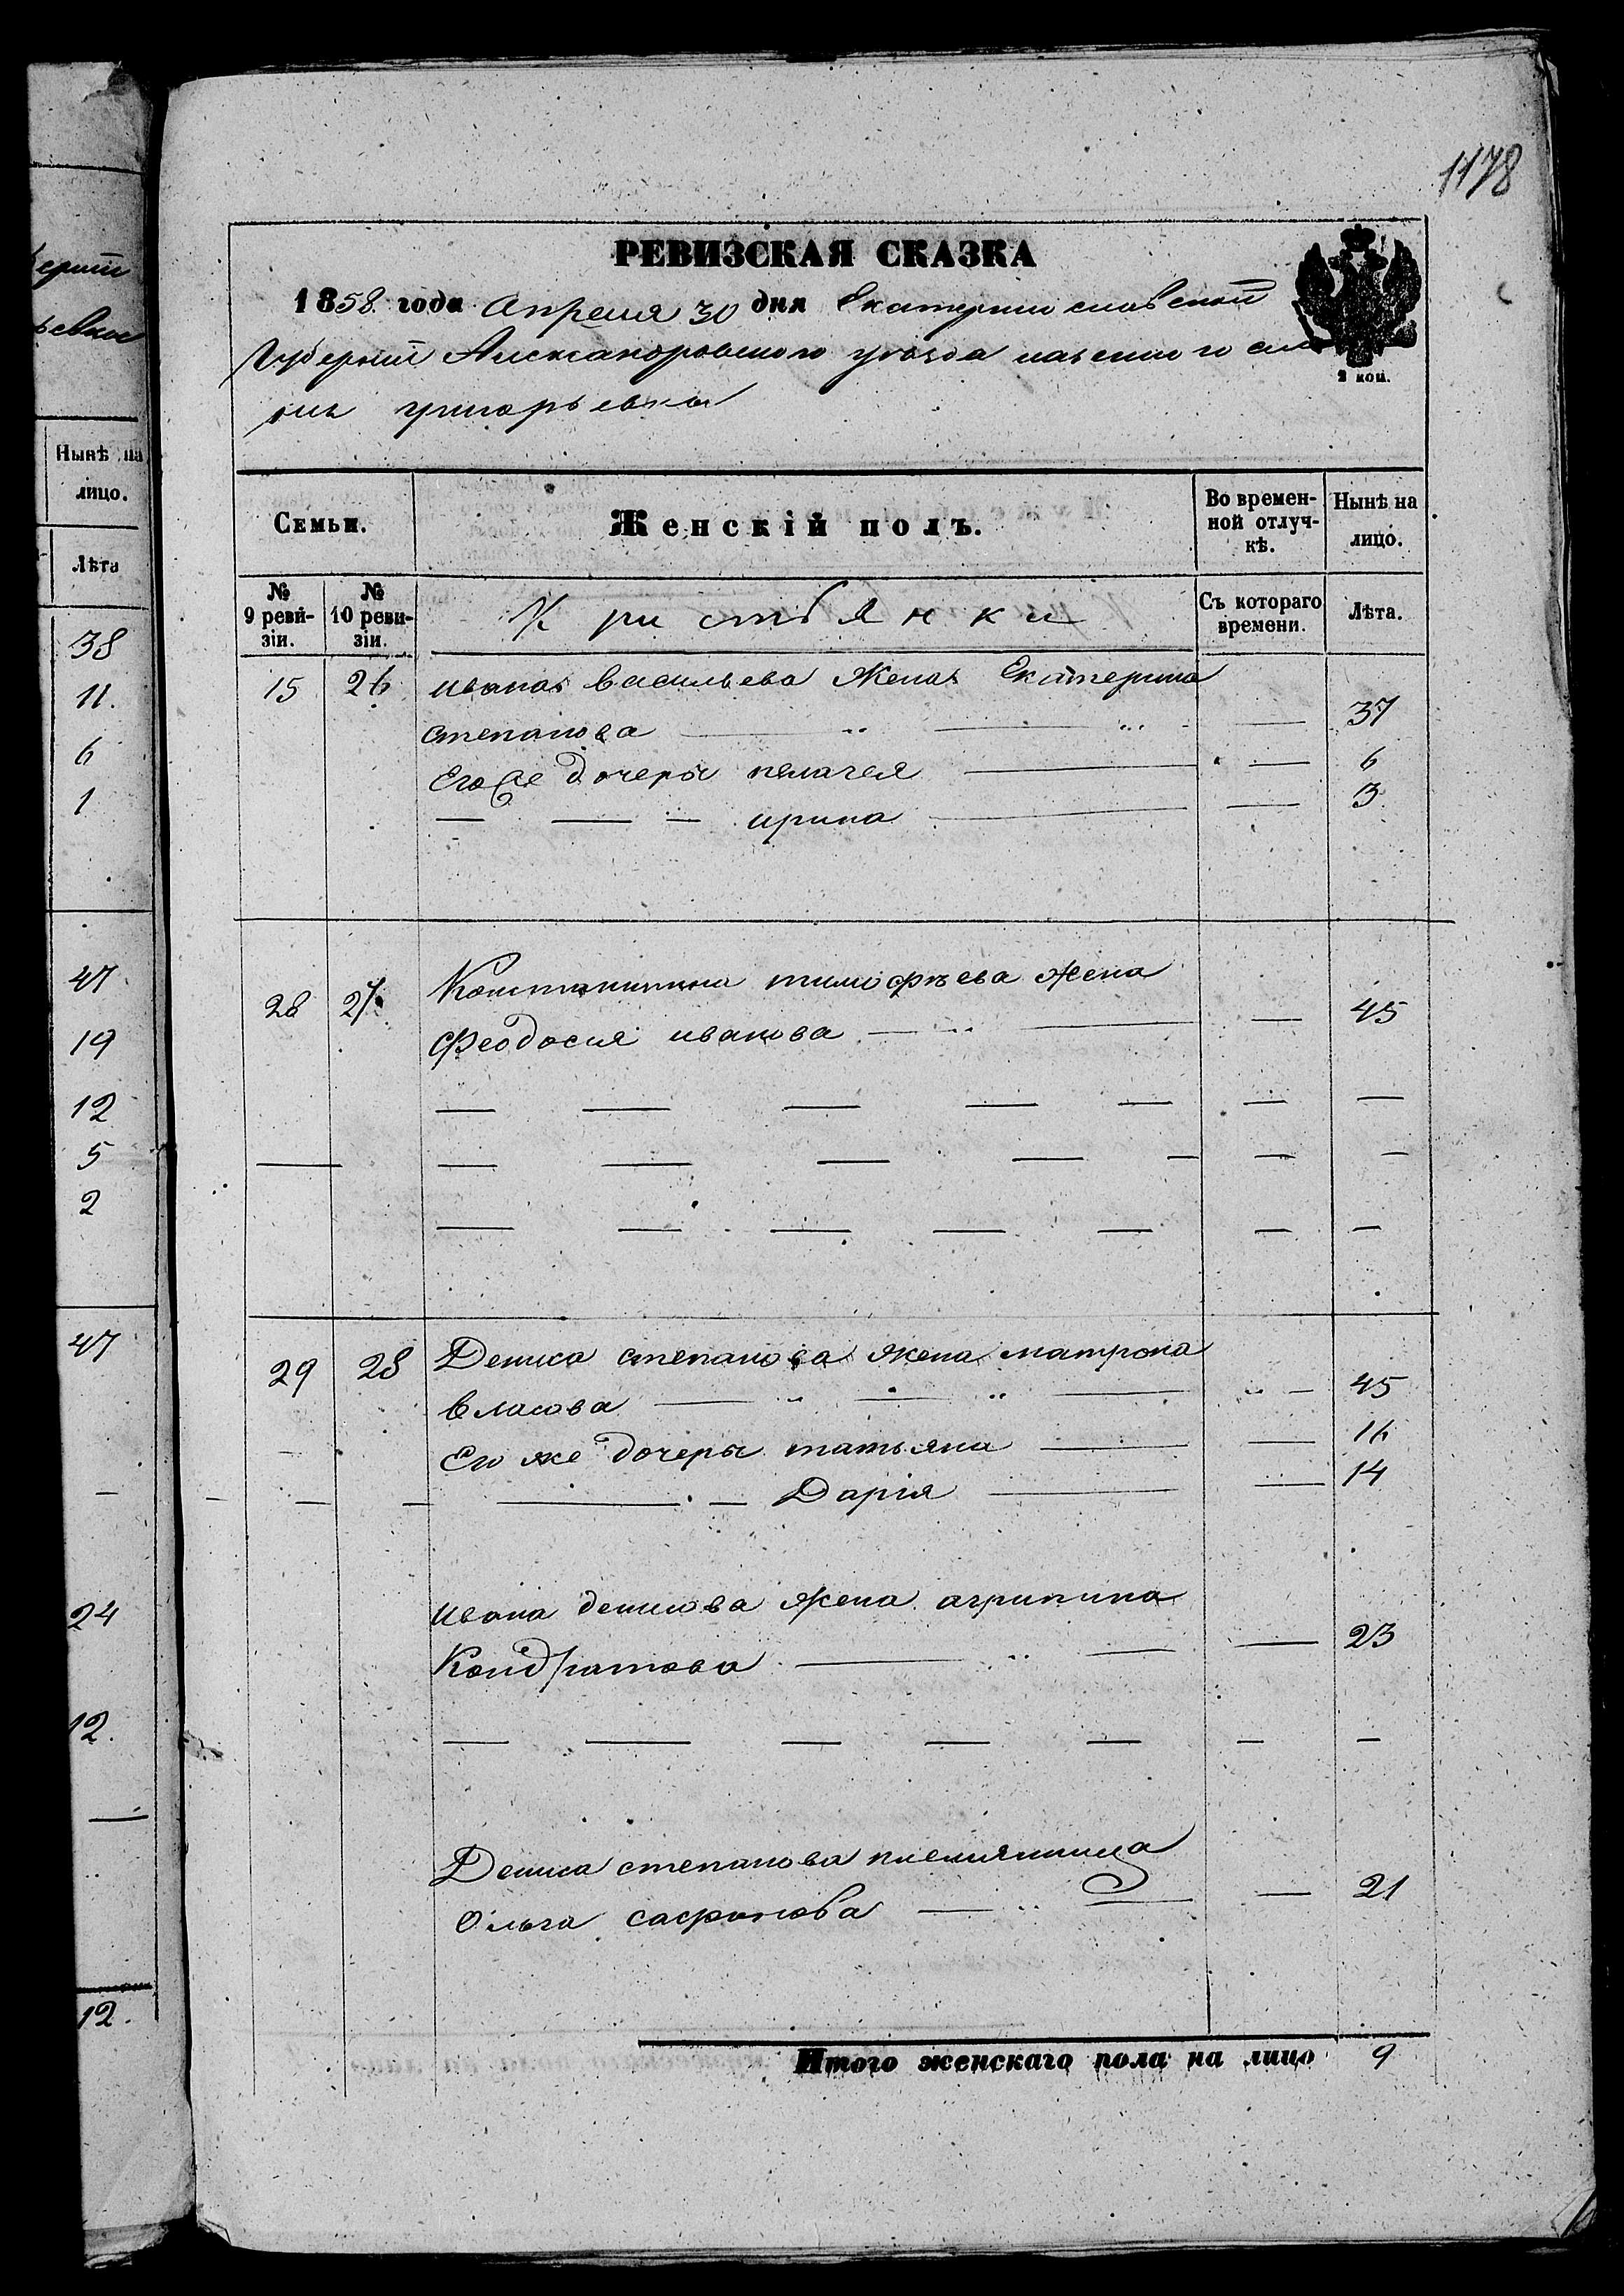 1178
РЕВИЗСКАЯ СКАЗКА
1858 года Апреля 30 дня Екатеринославской
Губернии Александровского уезда казенного се
григорьевки
2 коп.
Семьи.
Женскій полъ.
Во времен-
ной отлуч-
кѣ.
Нынѣ на
лицо.
№
9 реви-
зіи.
№
10 реви-
зіи.
Кристьянки
Съ котораго
времени.
Лѣта.
15 26 Ивана васильева Жена Екатерина
степанова 37
Его же дочеры пелагея 6
ирина 3
28 27 Констинтина тимофѣева жена
Феодосия иванова 45
29 28 Дениса степанова жена матрона
Власова 45
Его же дочеры татьяна 16
Дарія 14
Ивана денисова жена агрипина
Кондратова 23
Дениса степанова племянница
Ольга сафонова 21
Итого женскаго пола на лицо 9
Нынѣ на
лицо.
Лѣта
38
11.
6
1
47
19
12
5
2
47
24
12.
12.